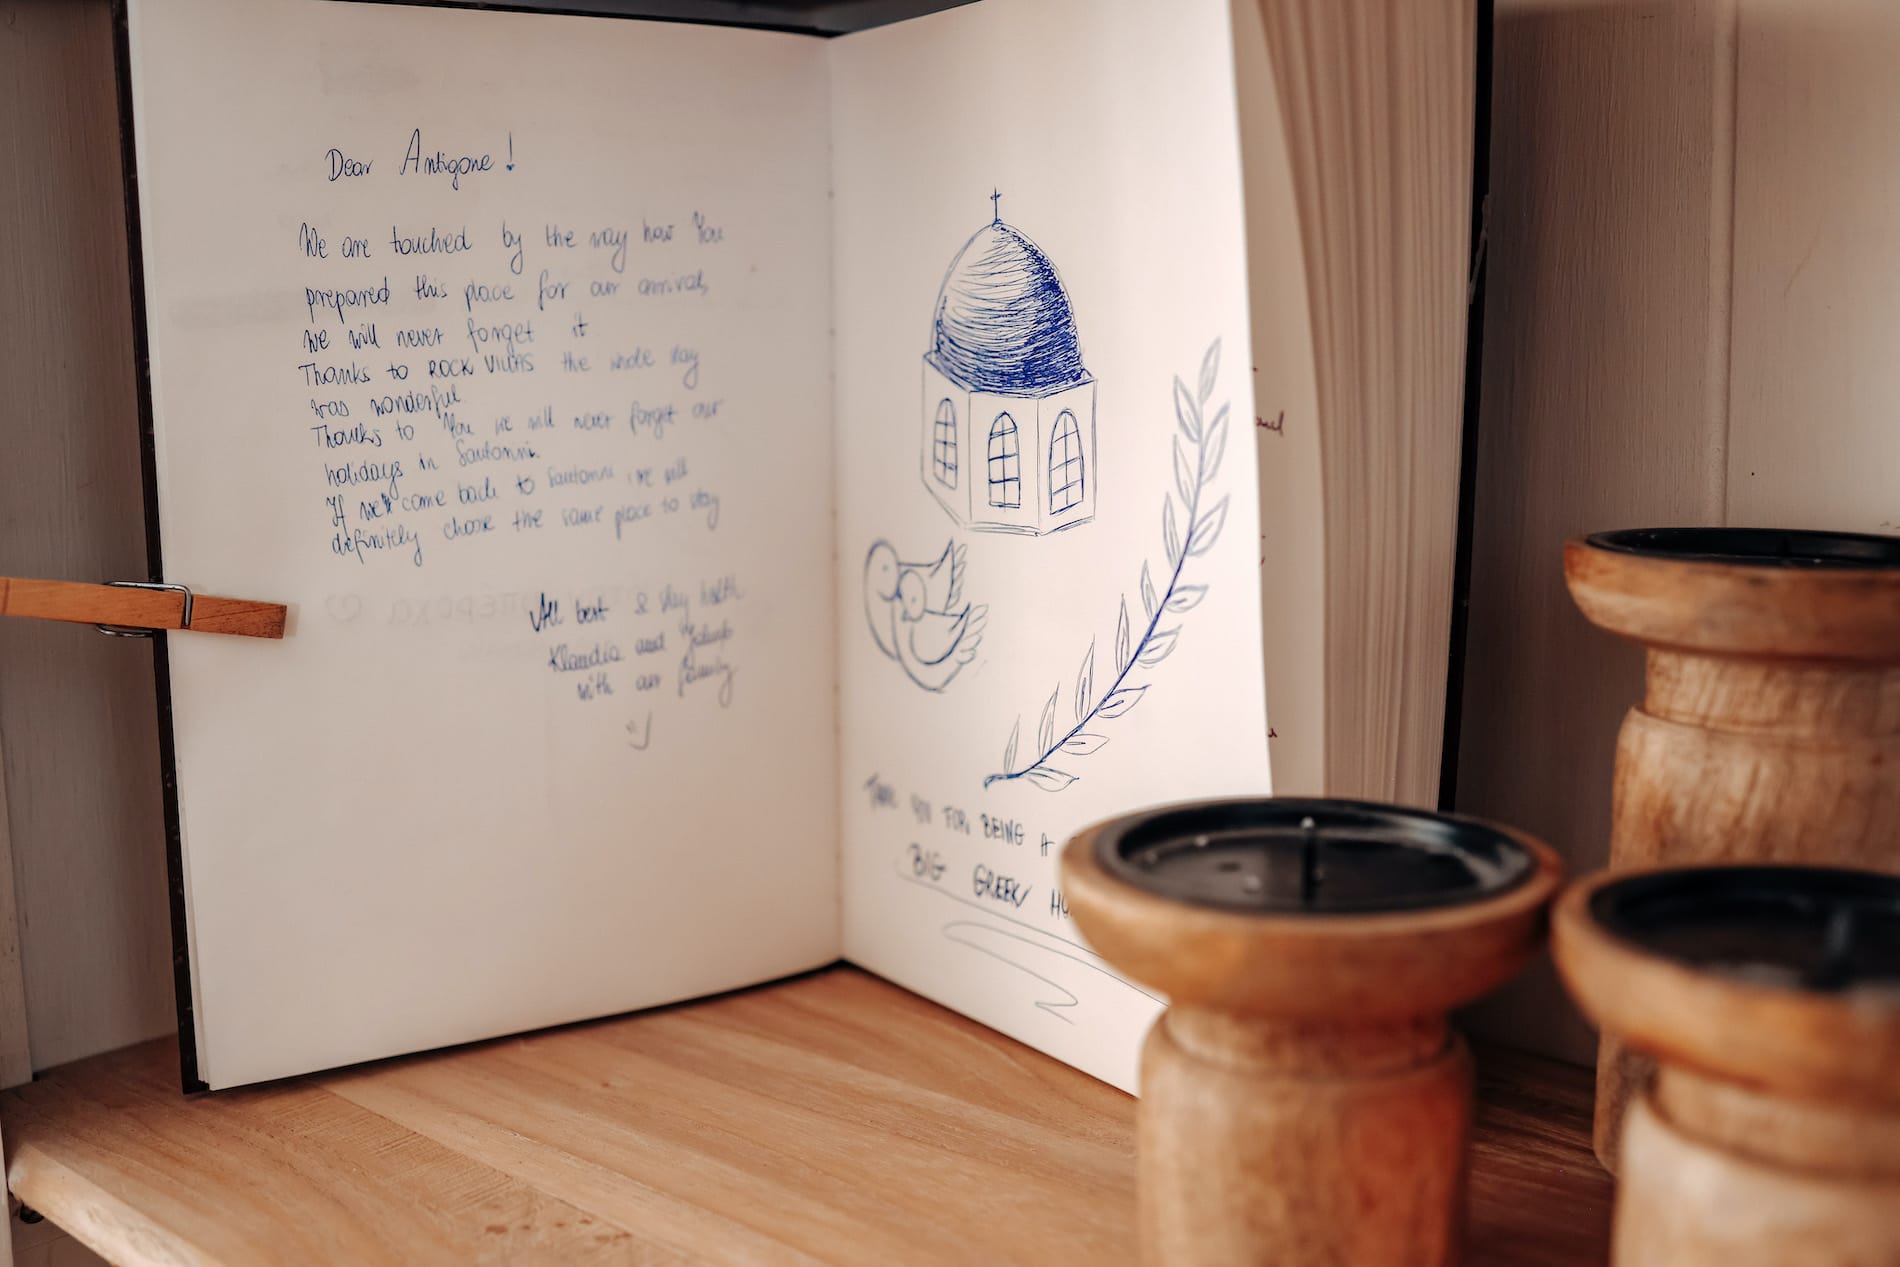 Dear Antigone!
We are touched by the way how You
prepared this place for our arrival,
we will never forget it.
Thanks to ROCK VILLAS the whole stay
was wonderful.
Thanks to You we will never forget our
holidays in Santorini.
If we'll come back to Santorini, we will
definitely choose the same place to stay
All best & stay health
Klaudia and Jakub
with our family
:)
YOU FOR BEING A
BIG GREEK